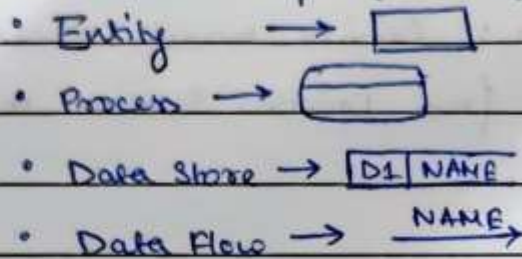 • Entity →
• Process →
• Data Store → D1 NAME
• Data Flow → NAME